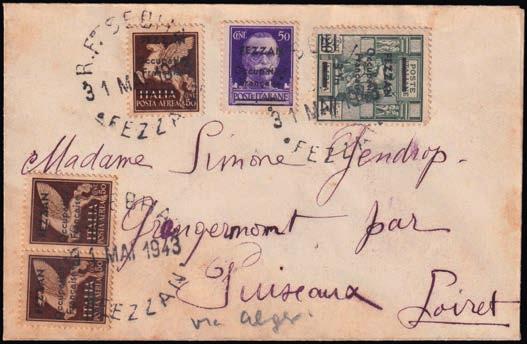 FEZZAN
Occupation
Française
ITALIA
POSTA AEREA 50
CENT. 50
FEZZAN
Occupation
Française
POSTE ITALIANE
POSTE
FEZZAN
Occupation
Française
31 MAI 1943
FEZZAN
31 MAI 1943
FEZZAN
Madame Simone Gendrop.
Grangermont par
Puiseaux
Loiret
via Alger.
FEZZAN
Occupation
Française
ITALIA
POSTA AEREA 50
FEZZAN
Occupation
Française
ITALIA
POSTA AEREA 50
31 MAI 1943
FEZZAN